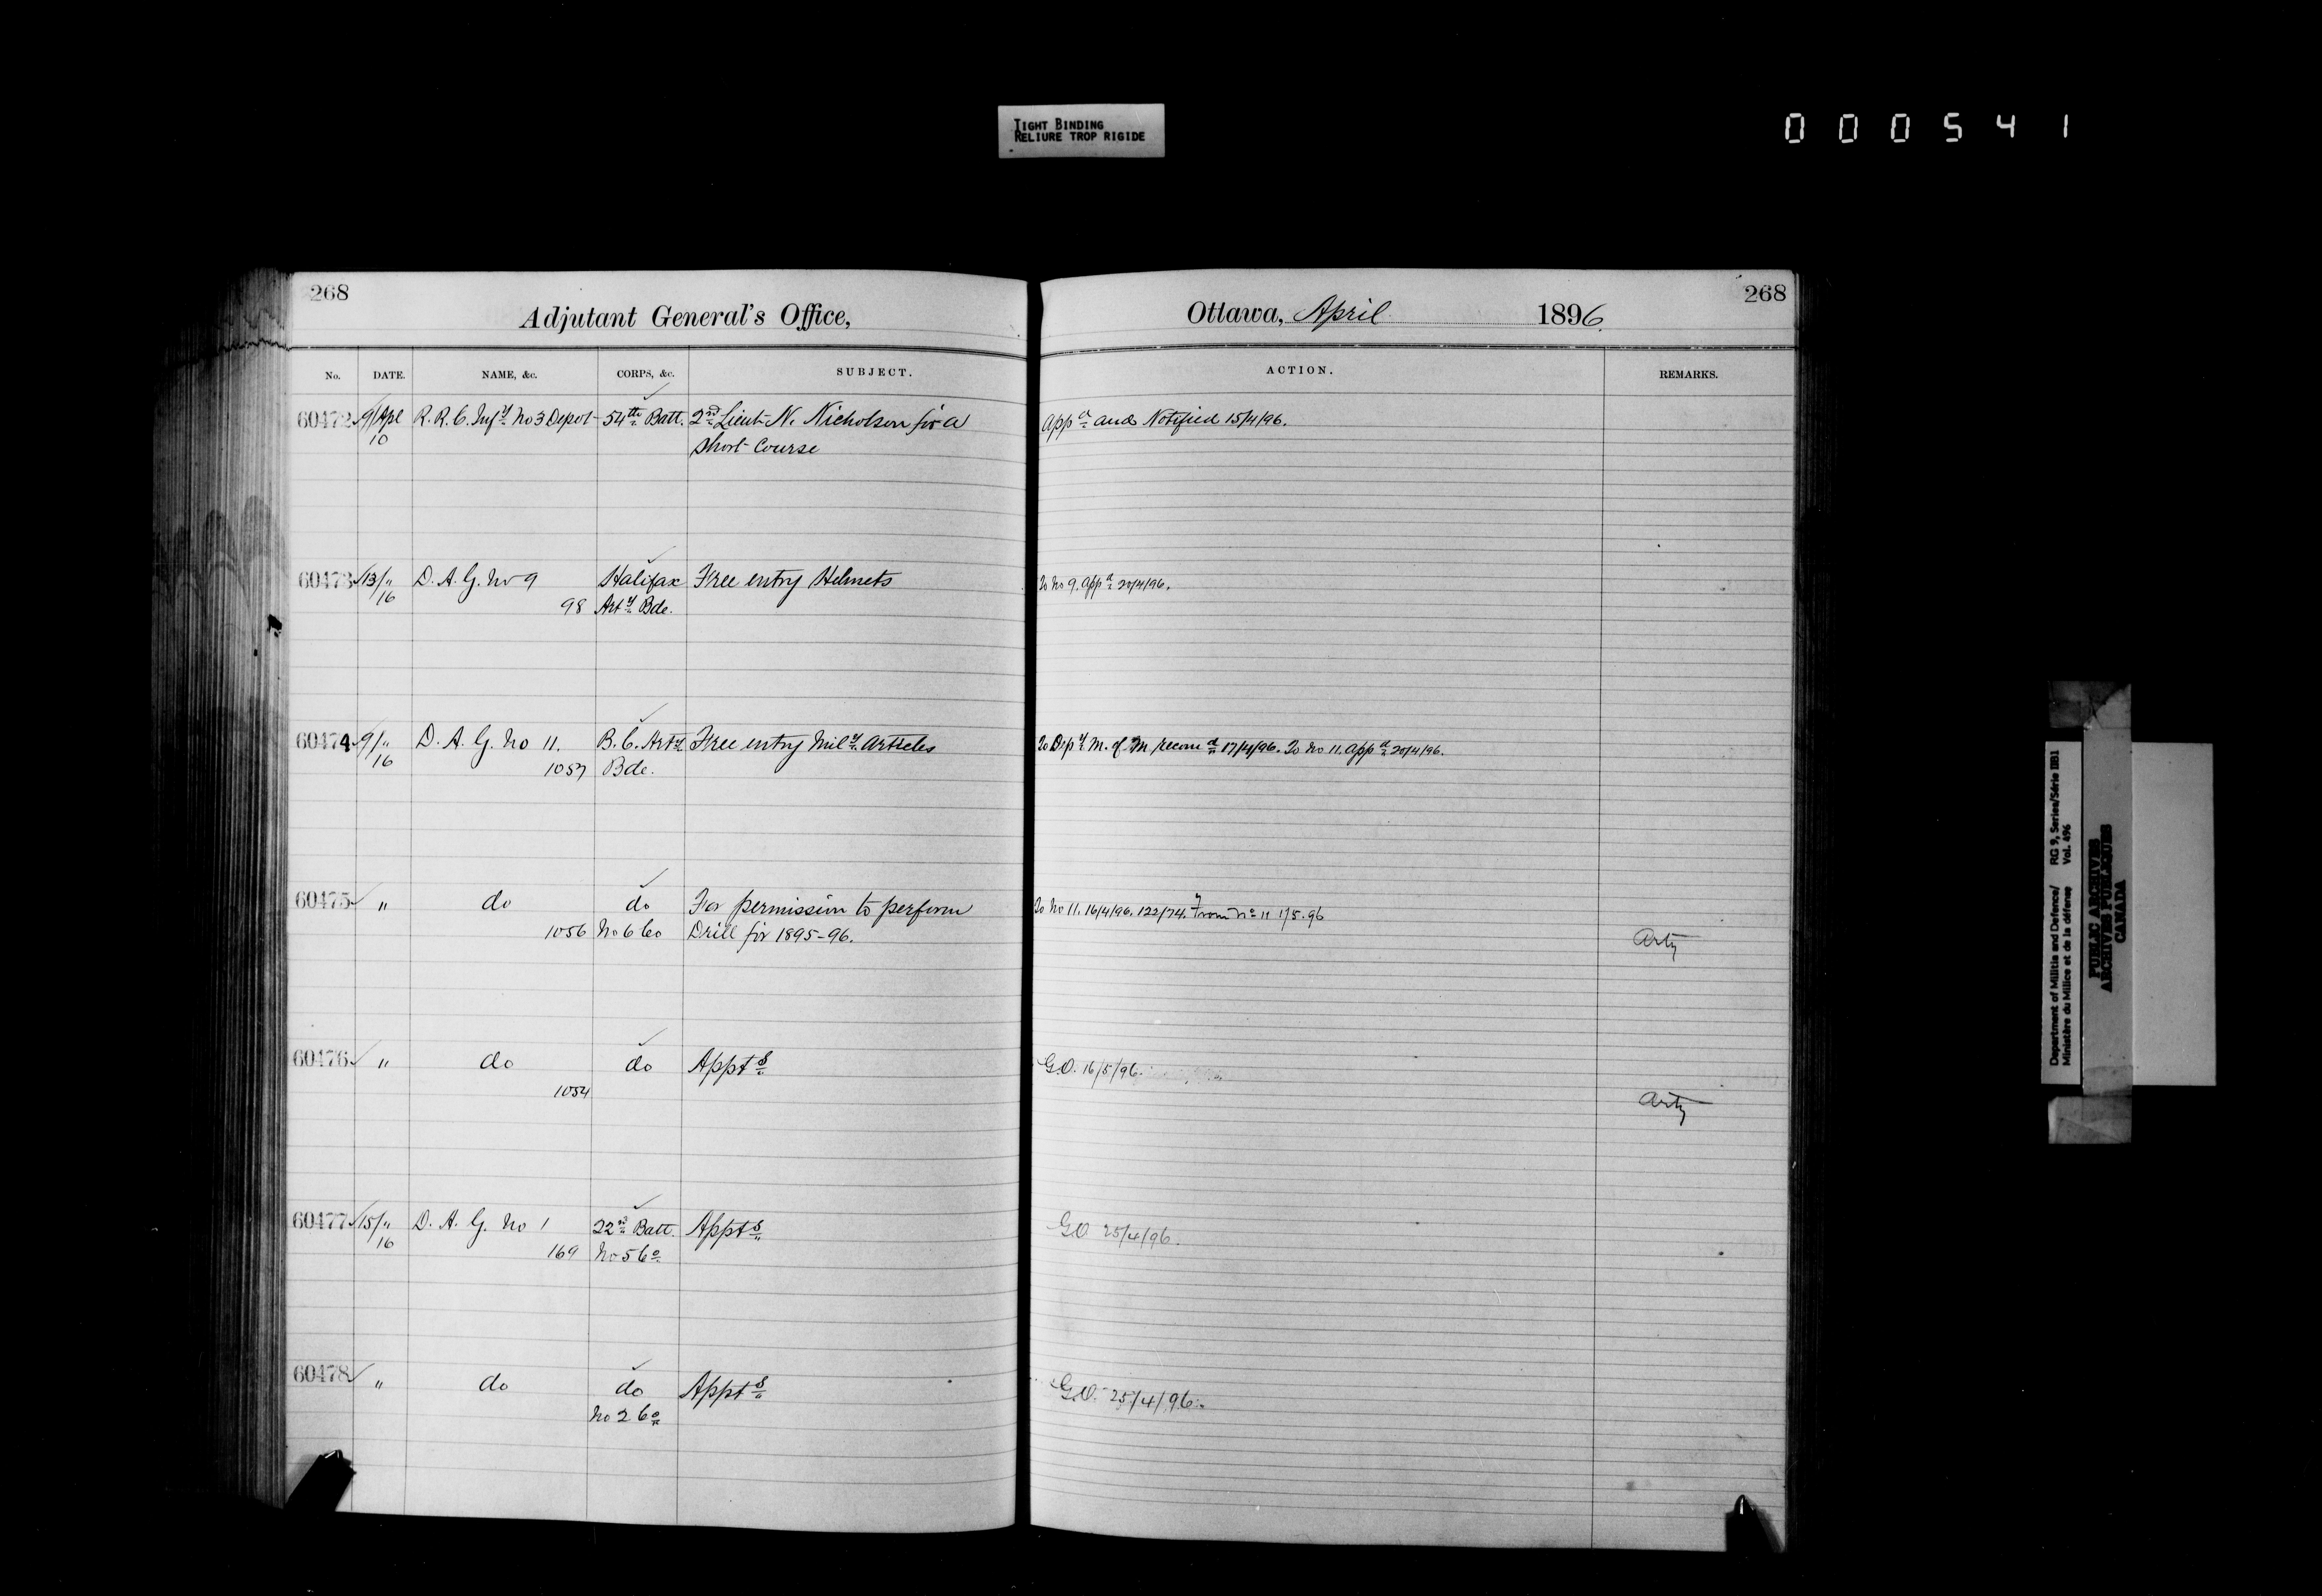 TIGHT BINDING
RELIURE TROP RIGIDE
000541
268
Adjutant General's Office,
No. DATE. NAME, &c. CORPS, &c. SUBJECT.
60472 9/Apl R.R.C. Infy No 3 Depot 54th Batt. 2nd Lieut N. Nicholson for a
10 Short Course
60473 13/" D.A.G. No 9 Halifax Free entry Helmets
16 98 Arty Bde.
60474 9/" D.A.G. No 11. B.C. Arty Free entry Mily Articles
16 1057 Bde.
60475 " do do For permission to perform
1056 No 6 Co Drill for 1895-96.
60476 " do do Appts
1054
60477 15/" D.A.G. No 1 22nd Batt. Appts
16 169 No 5 Co
60478 " do do Appts
No 2 Co
Ottawa, April 1896 268
ACTION. REMARKS.
Appd and Notified 15/4/96.
To No 9. appd 20/4/96.
To Depy M. of M. recomd 17/4/96. To No 11. appd 20/4/96.
To No 11. 16/4/96. 122/74. From No 11 1/5.96
Arty
G.O. 16/5/96.
Arty
G.O 25/4/96.
G.O. 25/4/96.
Department of Militia and Defence/ RG 9, Series/Série IIB1
Ministère du Milice et de la défense Vol. 496
PUBLIC ARCHIVES
ARCHIVES PUBLIQUES
CANADA